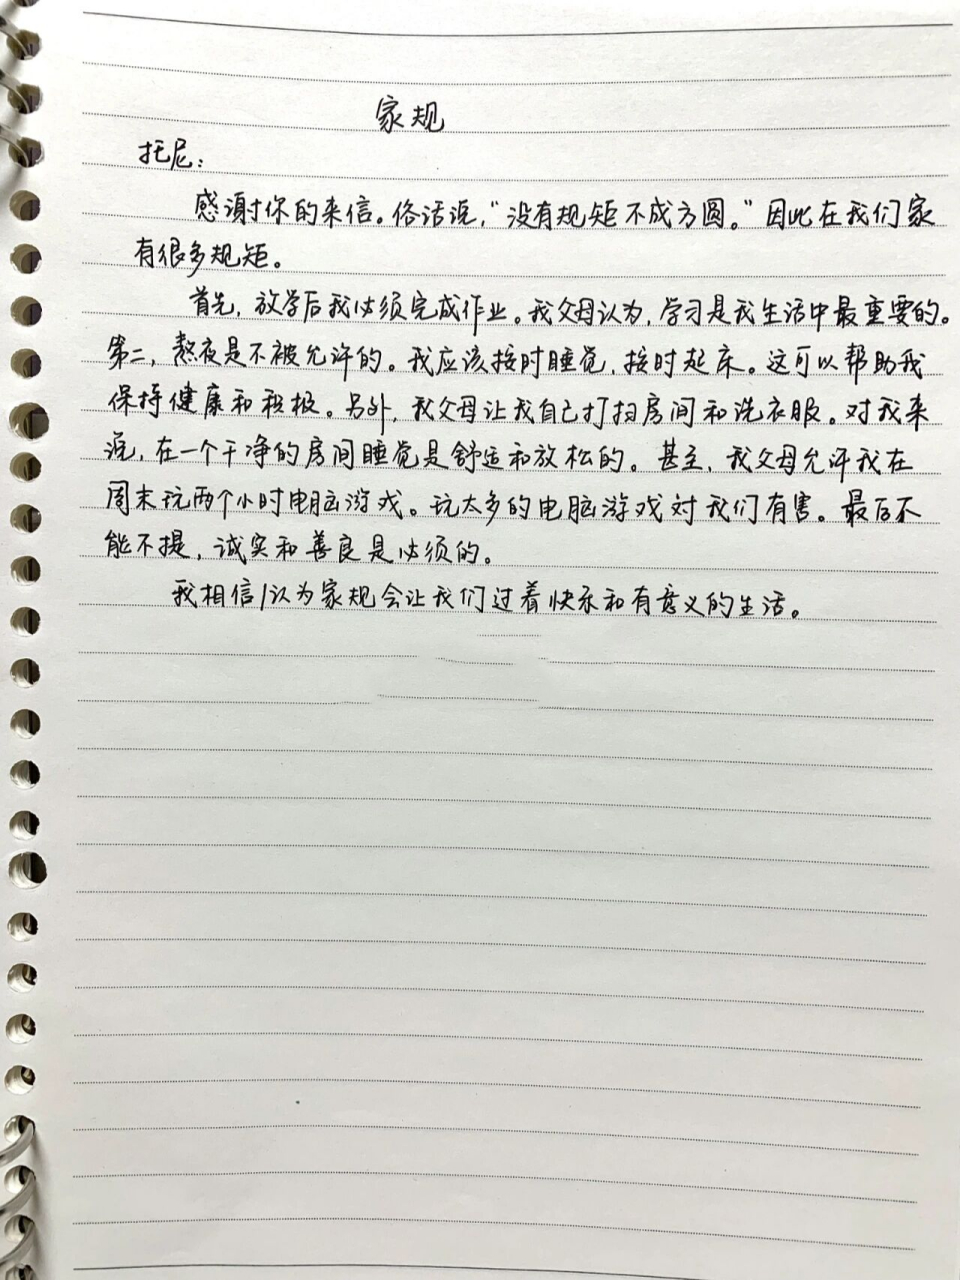 家规
托尼：
感谢你的来信。俗话说，“没有规矩不成方圆。”因此在我们家
有很多规矩。
首先，放学后我必须完成作业。我父母认为，学习是我生活中最重要的。
第二，熬夜是不被允许的。我应该按时睡觉，按时起床。这可以帮助我
保持健康和积极。另外，我父母让我自己打扫房间和洗衣服。对我来
说，在一个干净的房间睡觉是舒适和放松的。甚至，我父母允许我在
周末玩两个小时电脑游戏。玩太多的电脑游戏对我们有害。最后不
能不提，诚实和善良是必须的。
我相信/认为家规会让我们过着快乐和有意义的生活。